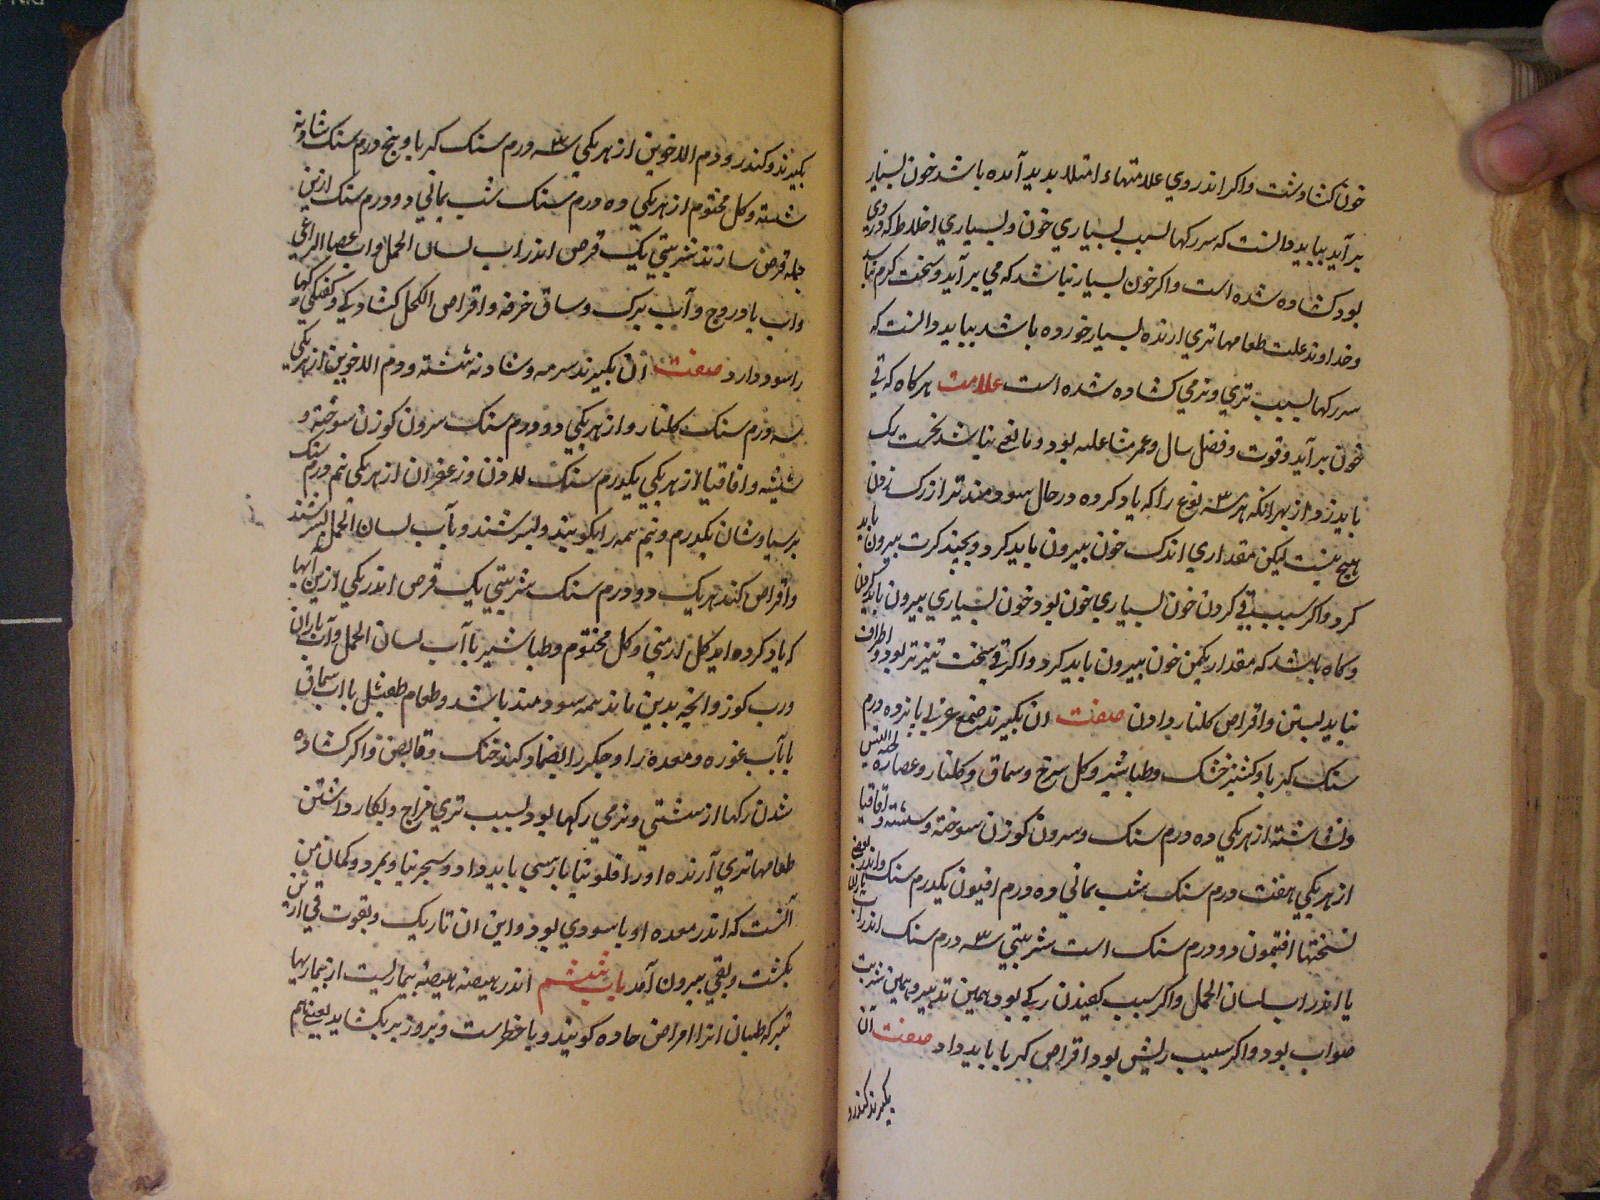 خون کشاوشت واکر اندر وي علامتهاء امتلا بدید آمده باشد خون بسیار
برآید بباید دانست که سررکها بسبب بسیاري خون و بسیاري اخلاط که در وي
بود کشاده شده است واکر خون بسیار نباشد که مي برآید وسخت کرم نباشد
وخداوند علت طعامها تري آرنده بسیار خورده باشد بباید دانست که
سررکها بسبب تري ونرمي کشاده شده است علامت هرکاه که قي
خون برآید وقوت وفصل سال وعمر مساعد بود ومانعي نباشد نخست رک
باید زد از بهر آنکه هر سه نوع را که یاد کرده در حال سودمندتر از رک زدن
هیچ نیست لیکن مقداري اندک خون بیرون باید کرد وبچند کرت بیرون باید
کرد واکر سبب قي کردن خون بسیاري خون بود خون بسیاري بیرون باید کردن
وکاه باشد که مقدار یکمن خون بیرون باید کرد واکر قي سخت تیزتر بود اطراف
بباید بستن واقراص کلنار دادن صفت ان بکیرند صمغ عربي پانزده درم
سنک کهربا وکشنیز خشک وطباشیر وکل سرخ وسماق وکلنار وعصاره لحیة التیس
ونشاسته از هریکي ده درم سنک وسرون کوزن سوخته وشسته واقاقیا
از هریکي هفت درم سنک شب یماني ده درم افیون یکدرم سنک واندر بعضي
نسختها افتیمون دو درم سنک است شربتي سه درم سنک اندر آب باران
یا اندر آب لسان الحمل واکر سبب کفیدن رکي بود همین تدبیر وهمین شربت
صواب بود واکر سبب ریش بود اقراص کهربا باید داد صفت آن
بکیرند کندر و
بکیرند وکندر ودم الاخوین از هریکي سه درم سنک کهربا وپنج درم سنک شادنه
شسته وکل مختوم از هریکي ده درم سنک شب یماني دو درم سنک ازین
جمله قرص سازند شربتي یک قرص اندر آب لسان الحمل وآب عصا الراعي
وآب بادروج وآب برک وساق خرفه واقراص الکحل کشادکي وکفتکي رکها
را سود دارد صفت آن بکیرند سرمه وشادنه شسته ودم الاخوین از هریکي
سه درم سنک کلنار واز هریکي دو درم سنک سرون کوزن سوخته و
شسته واقاقیا از هریکي یکدرم سنک لادن وزعفران از هریکي نیم درم سنک
پرسیاوشان یکدرم ونیم همه را بکوبند وبسرشند وبآب لسان الحمل بسرشند
واقراص کنند هریک دو درم سنک شربتي یک قرص اندر یکي ازین آبها
که یاد کرده اید کل ارمني وکل مختوم وطباشیر با آب لسان الحمل وآب باران
ورب کوز وانچه بدین ماند همه سودمند باشد وطعام طفشیل با آب سماق
یا بآب غوره ومعده را وجکر را بضماد کنند خنک وقابض واکر کشاده
شدن رکها از سستي ونرمي رکها بود بسبب تري مزاج وبکار داشتن
طعامها تري آرنده او را فلونیا پارسي باید داد وسجزینا وبمرد وکمان من
آنست که اندر معده او باسوري بود واین ان تاریک وبقوت قي ازین
بکشت وبقي بیرون آمد باب ششم اندر هیضه هیضه بیماریست از بیماریها
تیز که طبیبان آنرا امراض حاده کویند وبا خطرست وزبر وزیر بکشاید یعني هم